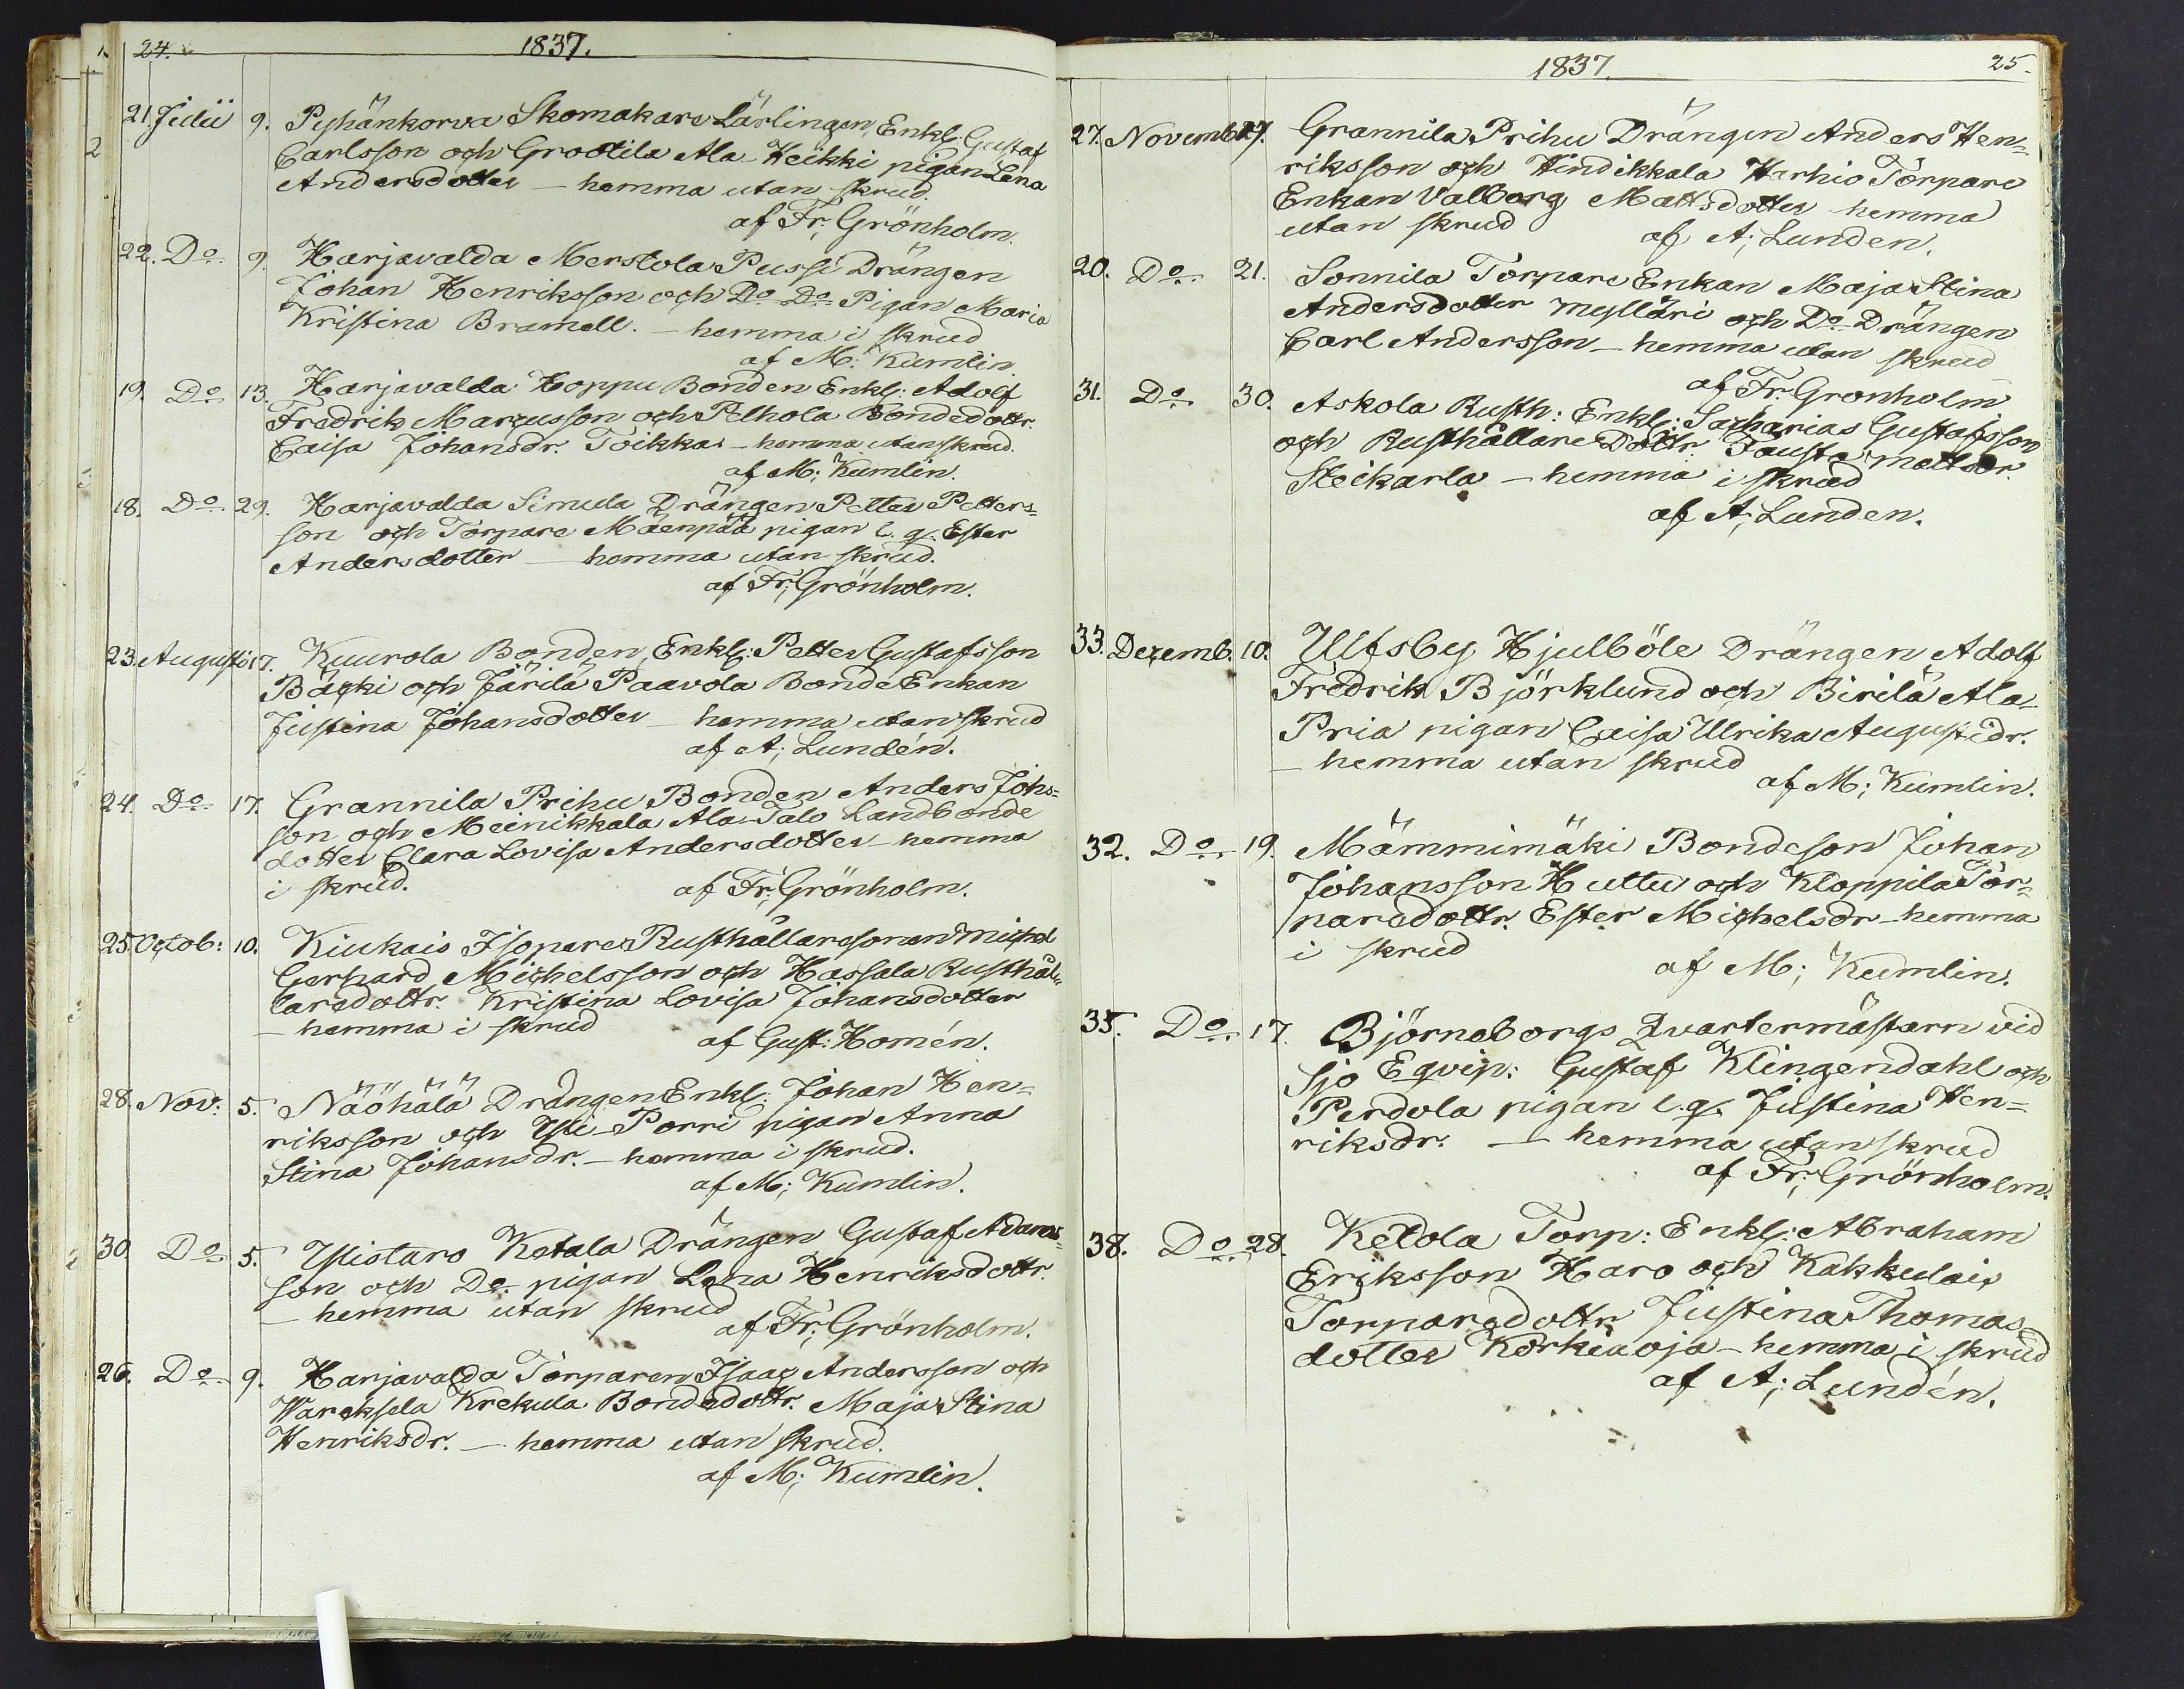 24. 1837.
21. Julii 9. Pyhänkorva Skomakare Lärlingen, Enkl: Gustaf
Carlsson och Grootila Ala-Heikki pigan Lena
Andersdotter — hemma utan skrud.
af Fr; Grönholm.
22. Do 9. Harjavalda Merstola Pussi Drängen
Johan Henriksson och Do Do Pigan Maria
Kristina Bramell. — hemma i skrud
af M: Kumlin.
19. Do 13. Harjavalda Hoppu Bonden Enkl: Adolf
Fredrik Marcusson och Pelhola Bondedottr.
Caisa Johansdr. Toikka — hemma utan skrud.
af M; Kumlin.
18. Do 29. Harjavalda Simula Drängen Petter Petters=
son och Torpare Mäenpää pigan l. g. Ester
Andersdotter — hemma utan skrud.
af Fr; Grönholm.
23. Augusti 17. Kuurola Bonden, Enkl: Petter Gustafsson
Bäcki och Järilä Paavola Bonde Enkan
Justina Johansdotter — hemma utan skrud
af A; Lundén.
24. Do 17. Grannila Prihu Bonden Anders Johs=
son och Meinikkala Ala-Talo Landbonde
dotter Clara Lovisa Andersdotter — hemma
i skrud. af Fr; Grönholm.
25. Octob: 10. Kiukais Isopere Rusthållaresonen Michel
Gerhard Michelsson och Hassala Rusthål=
laredottr. Kristina Lovisa Johansdotter
— hemma i skrud af Gust: Homén.
28. Nov: 5. Näöhälä Drängen Enkl: Johan Hen=
riksson och Yli-Porri pigan Anna
Stina Johansdr. — hemma i skrud.
af M; Kumlin.
30 Do 5. Ylistaro Ketala Drängen Gustaf Adams=
son och Do pigan Lena Henriksdottr.
— hemma utan skrud af Fr; Grönholm.
26. Do 9. Harjavalda Torparen Isaac Andersson och
Wareksela Krekula Bondedottr. Maja Stina
Henriksdr. — hemma utan skrud.
af M; Kumlin.
1837. 25.
27. Novemb. 19. Grannila Prihu Drängen Anders Hen=
riksson och Hindikkala Harhio Torpare
Enkan Valborg Mattsdotter hemma
utan skrud af A; Lunden.
20. Do 21. Sonnila Torpare Enkan Maja Stina
Andersdotter Mylläri och Do Drängen
Carl Andersson — hemma utan skrud
af Fr: Gronholm
31. Do 30. Askola Rusth: Enkl: Sacharias Gustafsson
och Rusthållare Dottr. Fausta Mattsdr.
Steikarla — hemma i skrud
af A; Lunden.
33. Dezemb. 10. Ulfsby Hjulböle Drängen Adolf
Fredrik Björklund och Birilä Ala-
Pria pigan Caisa Ulrika Augustidr.
— hemma utan skrud
af M; Kumlin.
32. Do 19. Mämmimäki Bondeson Johan
Johansson Huttu och Kloppila Tor=
paredottr. Ester Michelsdr — hemma
i skrud
af M; Kumlin.
35. Do 17. Björneborgs Qvartermästarn vid
Sjo Eqvip: Gustaf Klingendahl och
Perdola pigan l. g. Justina Hen=
riksdr. — hemma utan skrud
af Fr; Grönholm.
38. Do 28. Keldola Torp: Enkl: Abraham
Ericksson Haro och Kakkulais
Torparedottr Justina Thomas
dotter Korkiaoja — hemma i skrud
af A; Lundén.